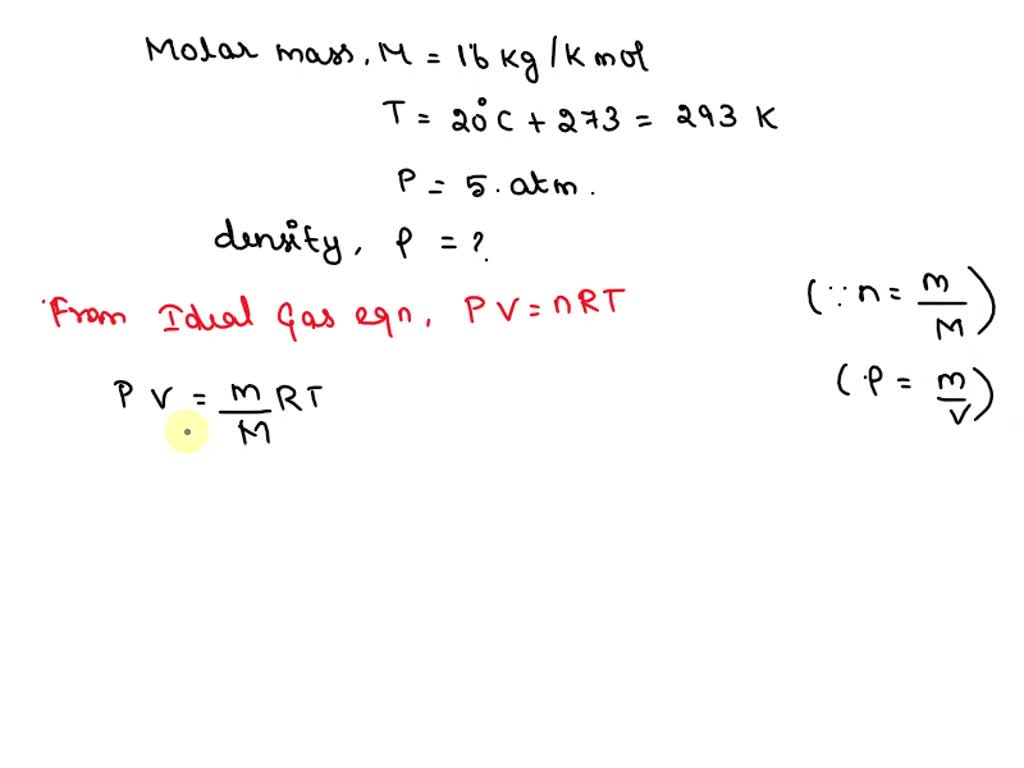 Molar mass, M = 16 kg/K mol
T = 20°C + 273 = 293 K
P = 5 atm.
density, ρ = ?
From Ideal Gas eqn, PV = nRT
(∵ n = m/M)
(ρ = m/V)
PV = m/M RT